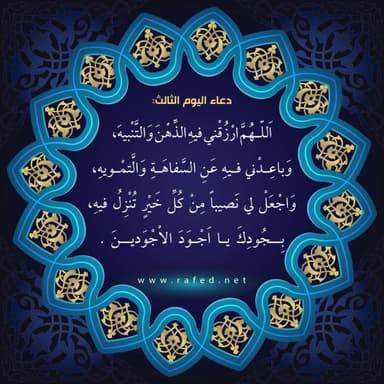 دعاء اليوم الثالث:
اَللّـهُمَّ ارْزُقْني فيهِ الذِّهْنَ وَالتَّنْبيهَ،
وَباعِدْني فيهِ عَنِ السَّفاهَةِ وَالتَّمْويهِ،
وَاجْعَلْ لي نَصيباً مِنْ كُلِّ خَيْرٍ تُنْزِلُ فيهِ،
بِـجُودِكَ يـا اَجْوَدَ الاَْجْوَديـنَ .
www.rafed.net